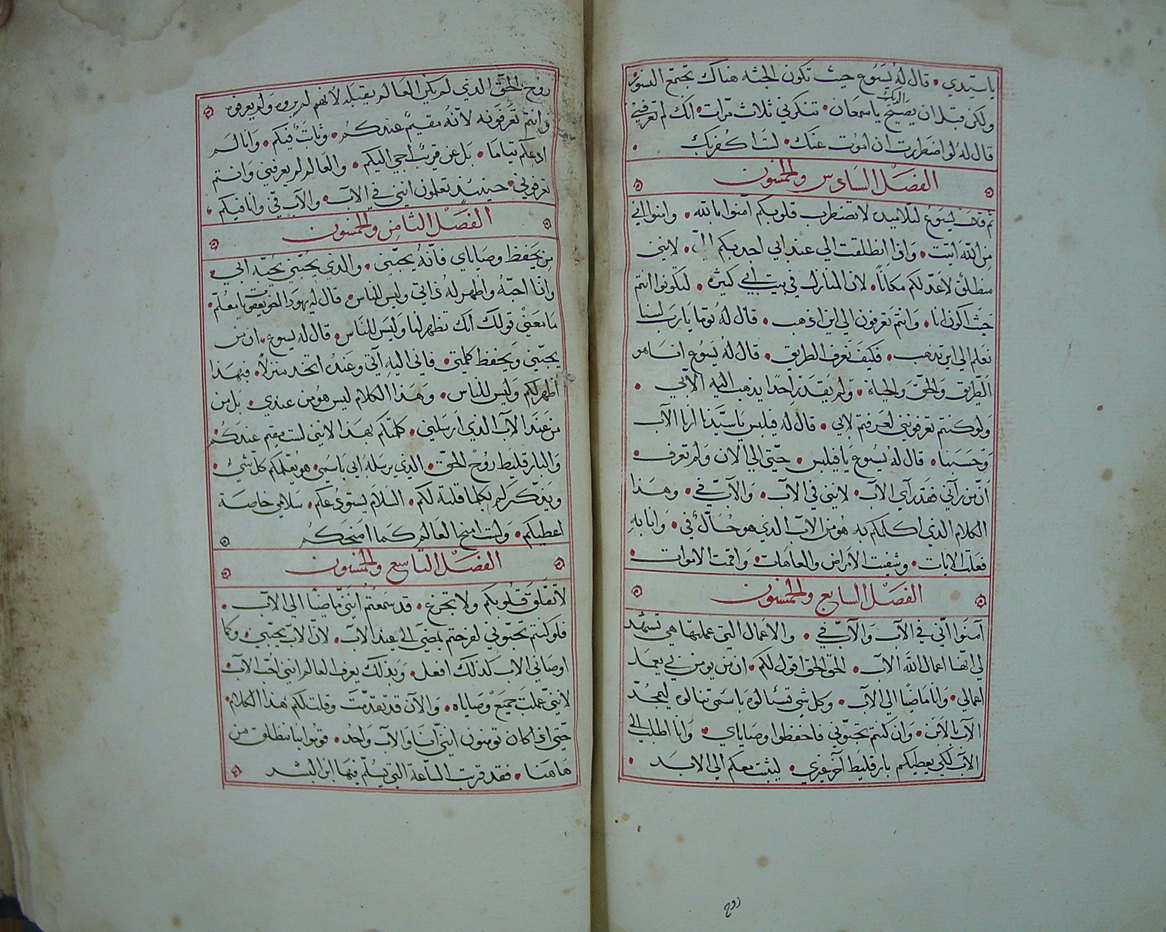 ياسيدي • قال له يسوع حيث تكون الجثه هناك تجتمع النسور
ولكن قبل ان يصيح الديك ياسمعان • تنكرني ثلاث مرات • انك لم تعرفني
قال له لو اضطررت ان اموت عنك • لست اكفر بك •
الفصل السادس والخمسون
ثم قال يسوع لتلاميذه لا تضطرب قلوبكم آمنوا بالله • وامنوا اني
من الله أتيت • وإذا انطلقت الى عند ابي احدبكم اليّ • لانني
منطلق لاعد لكم مكاناً • لان المنازل في بيت ابي كثيره • لتكونوا انتم
حيث اكون انا • وانتم تعرفون الى اين اذهب • قال له توما يارب لسنا
نعلم الى اين تذهب • فكيف نعرف الطريق • قال له يسوع انا هو
الطريق والحق والحياة • ولم يقدر احدا يذهب اليه الا بي •
ولو كنتم تعرفوني لعرفتم لابي • قال له فيلبس ياسيدنا أرنا الآب
وحسبنا • قال له يسوع يا فيلبس • حتى الى الان ولم تعرف •
ان من رآني فقد رآى الآب • لانني في الآب • والآب فيّ • وهذا
الكلام الذي اكلمكم به هو من الآب الذي هو حالّ في • وانا به
فعلت الايات • وشفيت الامراض والعاهات • واقمت الاموات •
الفصل السابع والخمسون
آمنوا انّي في الآب والآب فيّ • والاعمال التي عملتها هي تشهد
لي انها اعمال الله الآب • الحق الحق اقول لكم • ان من يومن بي يعمل
اعمالي • وانا ماضيا الى الآب • وكل شي تسئالوه باسمي تنالوه ليمجد
الآب الابن • وان كنتم تحبوني فاحفظوا وصاياي • وانا اطلب الى
الآب لكي يعطيكم بارقليط آخر غيري • ليثبت معكم الى الابد •
روح
روح الحق الذي لم يكن العالم يقبله لانهم لم يروه ولم يعرفوه
وانتم تعرفونه لانه مقيم عندكم • وثابت فيكم • وانا لم
ادعكم يتاما • بل عن قريب اجي اليكم • والعالم لم يعرفني وانتم
تعرفوني • حينيذ تعلمون انني في الآب • والآب فيّ وانا فيكم •
الفصل الثامن والخمسون
من يحفظ وصاياي فانّه يحبني • والذي يحبّني يحبّه ابي •
وانا احبّه واظهر له ذاتي وليس للناس • قال يهودا يامعلم •
ما معنى قولك انك تظهر لنا وليس للناس • قال له يسوع • ان من
يحبّني ويحفظ كلمتي • فاني اليه آتي وعنده اتخد منزلاً • فبهذا
اظهر لكم وليس للناس • وهذا الكلام ليس هو من عندي • بل من
من عند الآب الذي أرسلني • كلمتكم بهذا لانني لست مقيم عندكم
والبارقليط روح الحق • الذي يرسله ابي باسمي • هو يعلمكم كل شي •
ويذكركم بكلما قلته لكم • السلام استودعكم • سلامي خاصة
اعطيكم • ولست امنح العالم كما امنحكم
الفصل التاسع والخمسون
لا تقلق قلوبكم ولا تجزع • قد سمعتم انني ماضيا الى الآب •
فلو كنتم تحبّوني لفرحتم بمضيّي الى عند الآب • لانّ الآب يحبّني • وكما
اوصاني الآب كذلك افعل • وبذلك يعرف العالم انني احب الآب
لانني عملت جميع وصاياه • والآن قد تقدمت وقلت لكم هذا الكلام •
حتى اذا كان تومنون انني أنا والآب واحد • قوموا بنا ننطلق من
هاهنا • فقد قربت الساعة التي يسلم فيها ابن البشر